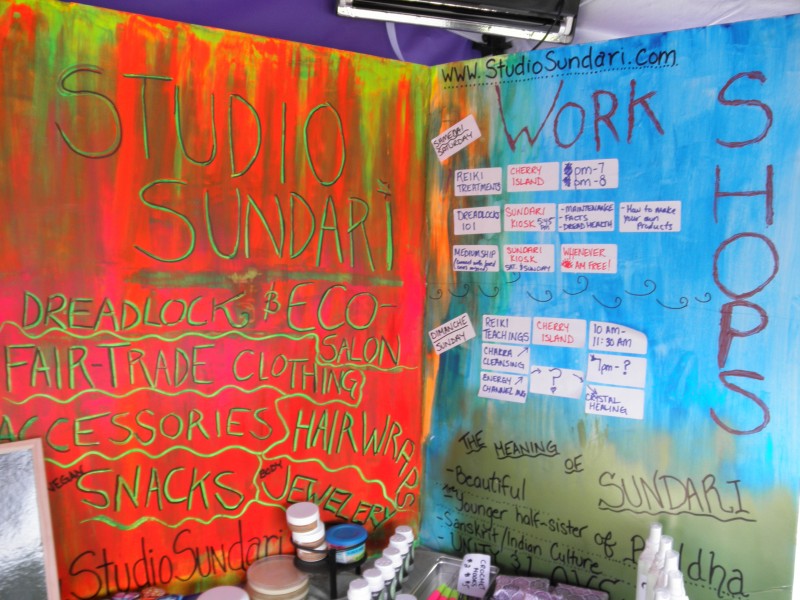 STUDIO
SUNDARI
DREADLOCK & ECO-
SALON
FAIR-TRADE CLOTHING
ACCESSORIES HAIRWRAPS
VEGAN SNACKS BODY JEWELERY
StudioSundari
www.StudioSundari.com
WORK
SHOPS
SAMEDAI
SATURDAY
REIKI
TREATMENTS
CHERRY
ISLAND
pm-7
pm-8
DREADLOCK
101
SUNDARI
KIOSK
- MAINTENANCE
- FACTS
- DREAD HEALTH
- How to make
your own
Products
MEDIUMSHIP
SUNDARI
KIOSK
SAT & SUNDAY
WHENEVER
AM FREE!
DIMANCHE
SUNDAY
REIKI
TEACHINGS
CHERRY
ISLAND
10 AM-
11:30 AM
CHAKRA
CLEANSING
7pm-?
ENERGY
CHANNELING
?
CRYSTAL
HEALING
THE MEANING OF
SUNDARI
- Beautiful
Younger half-sister of Buddha
- Sanskrit/Indian Culture
- UNITY & LOVE
CROCHET
HOOKS